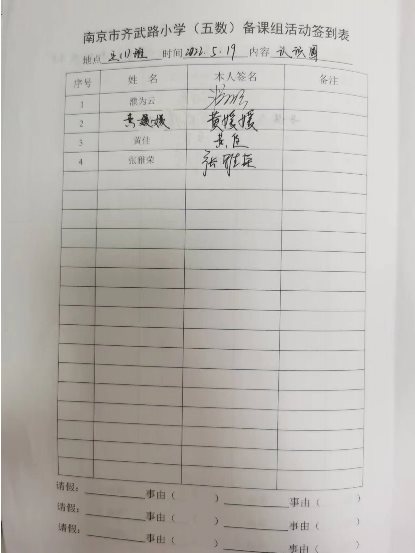 南京市齐武路小学（五数）备课组活动签到表
地点 五(1)班 时间 2022.5.19 内容 认识圆
序号 姓名 本人签名 备注
1 濮为云
2 黄媛媛 黄媛媛
3 黄佳 黄佳
4 张雅荣 张雅荣
请假： 事由（ ） 事由（ ）
请假： 事由（ ） 事由（ ）
请假： 事由（ ） 事由（ ）